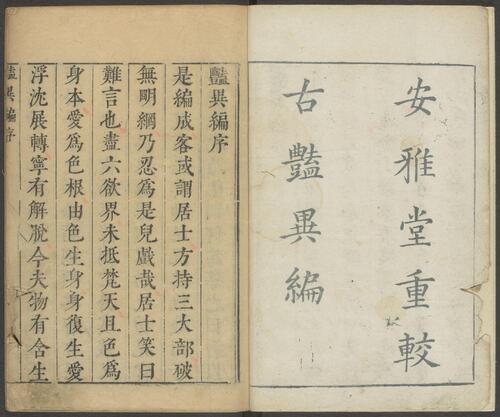 安雅堂重較
古豔異編
豔異編序
是編成客或謂居士方持三大部破
無明網乃忍為是兒戲哉居士笑曰
難言也盡六欲界未抵梵天且色為
身本愛為色根由色生身身復生愛
浮沈展轉寧有解脫今夫物有舍生
豔異編序